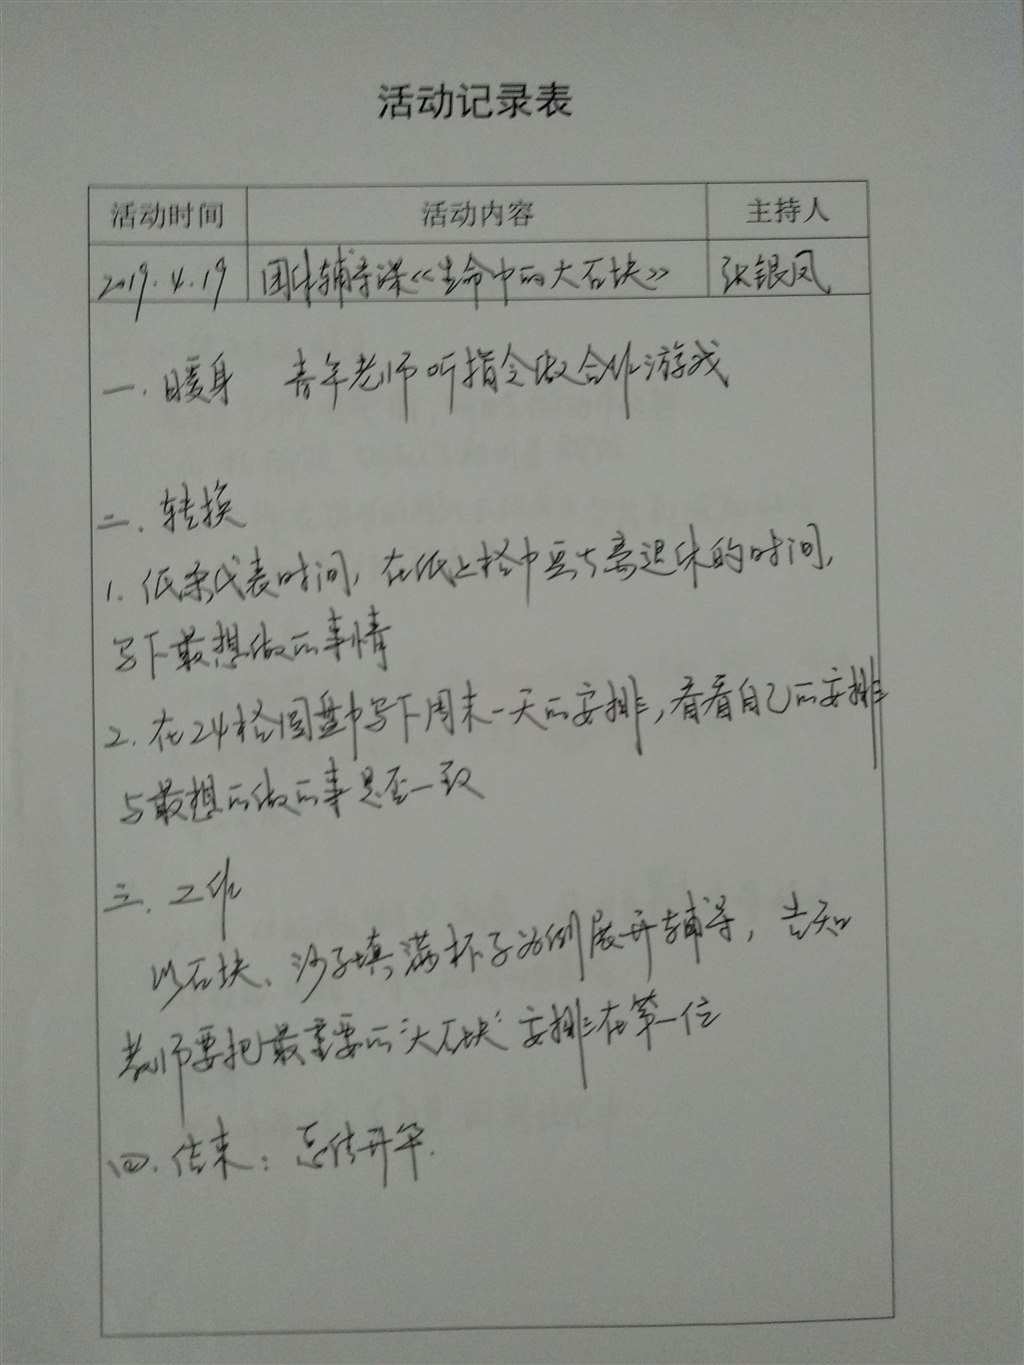 活动记录表
活动时间 活动内容 主持人
2019.4.19 团体辅导课《生命中的大石块》 张银凤
一.暖身 青年老师听指令做合作游戏
二.转换
1.纸条代表时间,在纸上格中 离退休的时间,
写下最想做的事情
2.在24格圆盘中写下周末一天的安排,看看自己的安排
与最想的做的事是否一致
三.工作
以石块、沙子填满杯子为例展开辅导,告知
老师要把最重要的“大石块”安排在第一位
四.结束:总结升华.